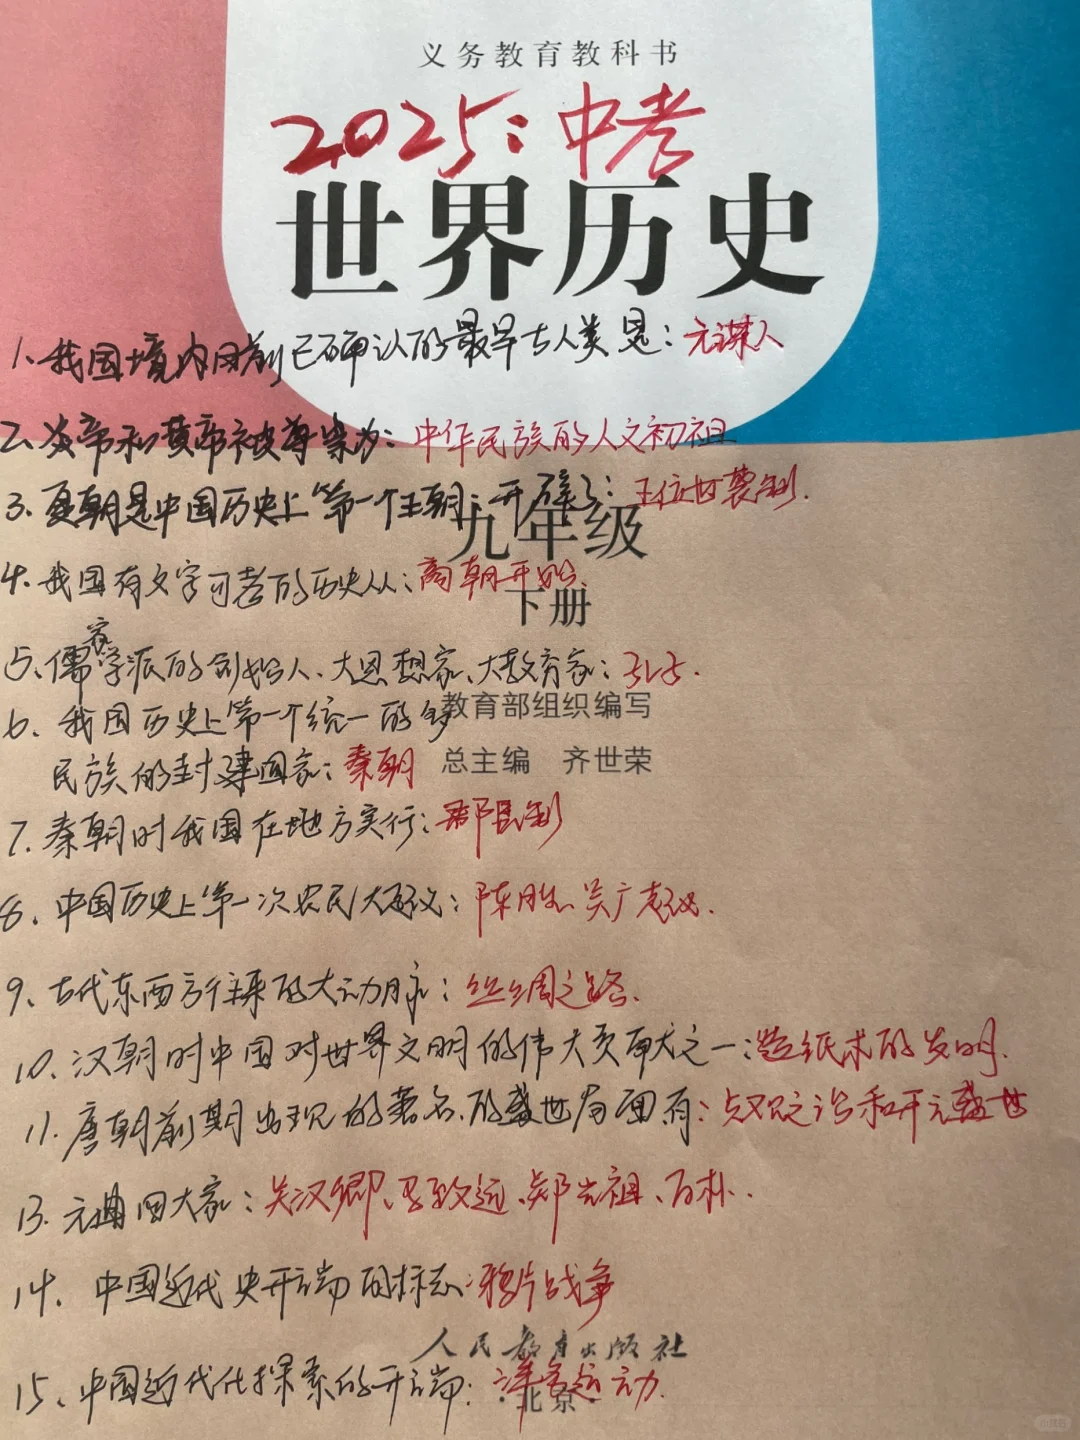 义务教育教科书
2025：中考
世界历史
1、我国境内目前已确认的最早古人类是：元谋人
2、炎帝和黄帝被尊崇为：中华民族的人文初祖
3、夏朝是中国历史上第一个王朝，开辟了：王位世袭制.
九年级
4、我国有文字可考的历史从：商朝开始.
下册
5、儒家学派的创始人、大思想家、大教育家：孔子.
6、我国历史上第一个统一的多
教育部组织编写
民族的封建国家：秦朝
总主编 齐世荣
7、秦朝时我国在地方实行：郡县制
8、中国历史上第一次农民大起义：陈胜、吴广起义.
9、古代东西方往来的大动脉：丝绸之路.
10、汉朝时中国对世界文明的伟大贡献之一：造纸术的发明.
11、唐朝前期出现的著名的盛世局面有：贞观之治和开元盛世
13、元曲四大家：关汉卿、马致远、郑光祖、白朴.
14、中国近代史开端的标志：鸦片战争
人民教育出版社
15、中国近代化探索的开端：洋务运动.
·北京·